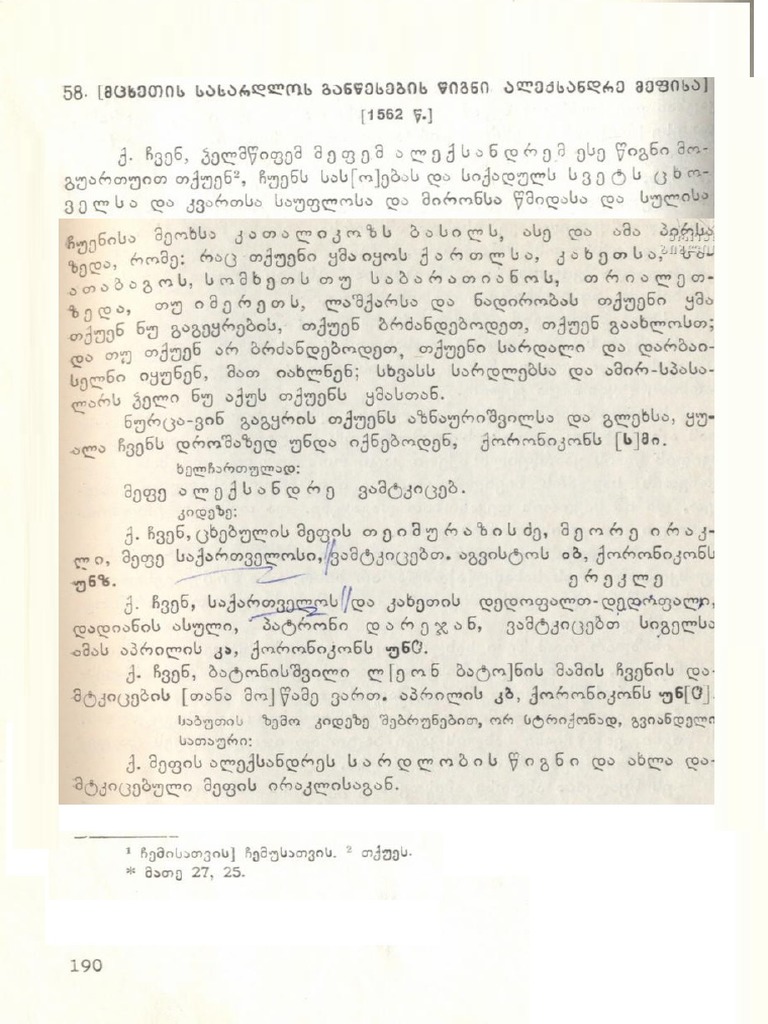 58. [მცხეთის სასარდლოს განწესების წიგნი ალექსანდრე მეფისა]
[1562 წ.]
ქ. ჩვენ, ჴელმწიფემ მეფემ ალექსანდრემ ესე წიგნი მო-
გუართუით თქუენ², ჩუენს სას[ო]ებას და სიქადულს სვეტს ცხო-
ველსა და კვართსა საუფლოსა და მირონსა წმიდასა და სულისა
ჩუენისა მეოხსა კათალიკოზს ბასილს, ასე და ამა პირსა
ზედა, რომე: რაც თქუენი ყმა იყოს ქართლსა, კახეთსა, სა-
ათაბაგოს, სომხეთს თუ საბარათიანოს, თრიალეთ-
ზედა, თუ იმერეთს, ლაშქარსა და ნადირობას თქუენი ყმა
თქუენ ნუ გაგეყრების, თქუენ ბრძანდებოდეთ, თქუენ გაახლოსთ;
და თუ თქუენ არ ბრძანდებოდეთ, თქუენი სარდალი და დარბაი-
სელნი იყუნენ, მათ იახლნენ; სხვასს სარდლებსა და ამირ-სპასა-
ლარს ჴელი ნუ აქუს თქუენს ყმასთან.
ნურცა-ვინ გაგყრის თქუენს აზნაურიშვილსა და გლეხსა, ყუ-
ალა ჩვენს დროშაზედ უნდა იქნებოდენ, ქორონიკონს [ს]მი.
ხელჩართულად:
მეფე ალექსანდრე ვამტკიცებ.
კიდეზე:
ქ. ჩვენ, ცხებულის მეფის თეიმურაზისძე, მეორე ირაკ-
ლი, მეფე საქართველოსი, ვამტკიცებთ. აგვისტოს იბ, ქორონიკონს
უნზ. ერეკლე
ქ. ჩვენ, საქართველოს და კახეთის დედოფალთ-დედოფალი,
დადიანის ასული, პატრონი დარეჯან, ვამტკიცებთ სიგელსა
ამას აპრილის კა, ქორონიკონს უნჲ.
ქ. ჩვენ, ბატონისშვილი ლ[ეონ ბატო]ნის მამის ჩვენის და-
მტკიცების [თანა მო]წამე ვართ. აპრილის კბ, ქორონიკონს უნ[ჲ].
საბუთის ზემო კიდეზე შებრუნებით, ორ სტრიქონად, გვიანდელი
სათაური:
ქ. მეფის ალექსანდრეს სარდლობის წიგნი და ახლა და-
მტკიცებული მეფის ირაკლისაგან.
¹ ჩემისათვის] ჩემუსათვის. ² თქუეს.
* მათე 27, 25.
190